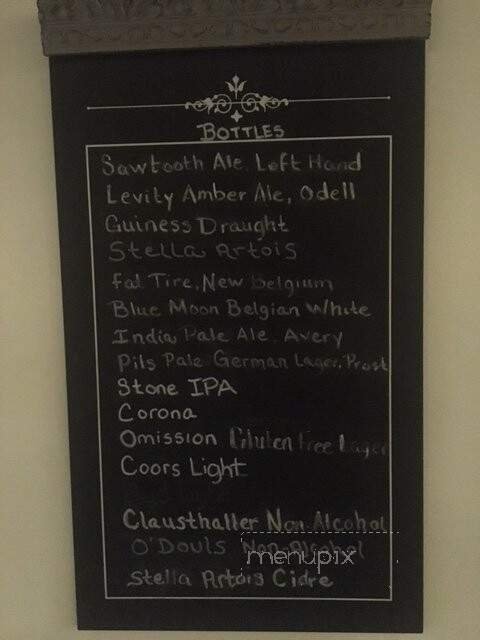 BOTTLES
Sawtooth Ale, Left Hand
Levity Amber Ale, Odell
Guiness Draught
Stella Artois
Fat Tire, New Belgium
Blue Moon Belgian White
India Pale Ale, Avery
Pils Pale German Lager, Prost
Stone IPA
Corona
Omission Gluten Free Lager
Coors Light
Clausthaller Non Alcohol
O'Douls Non-Alcohol
menupix
Stella Artois Cidre